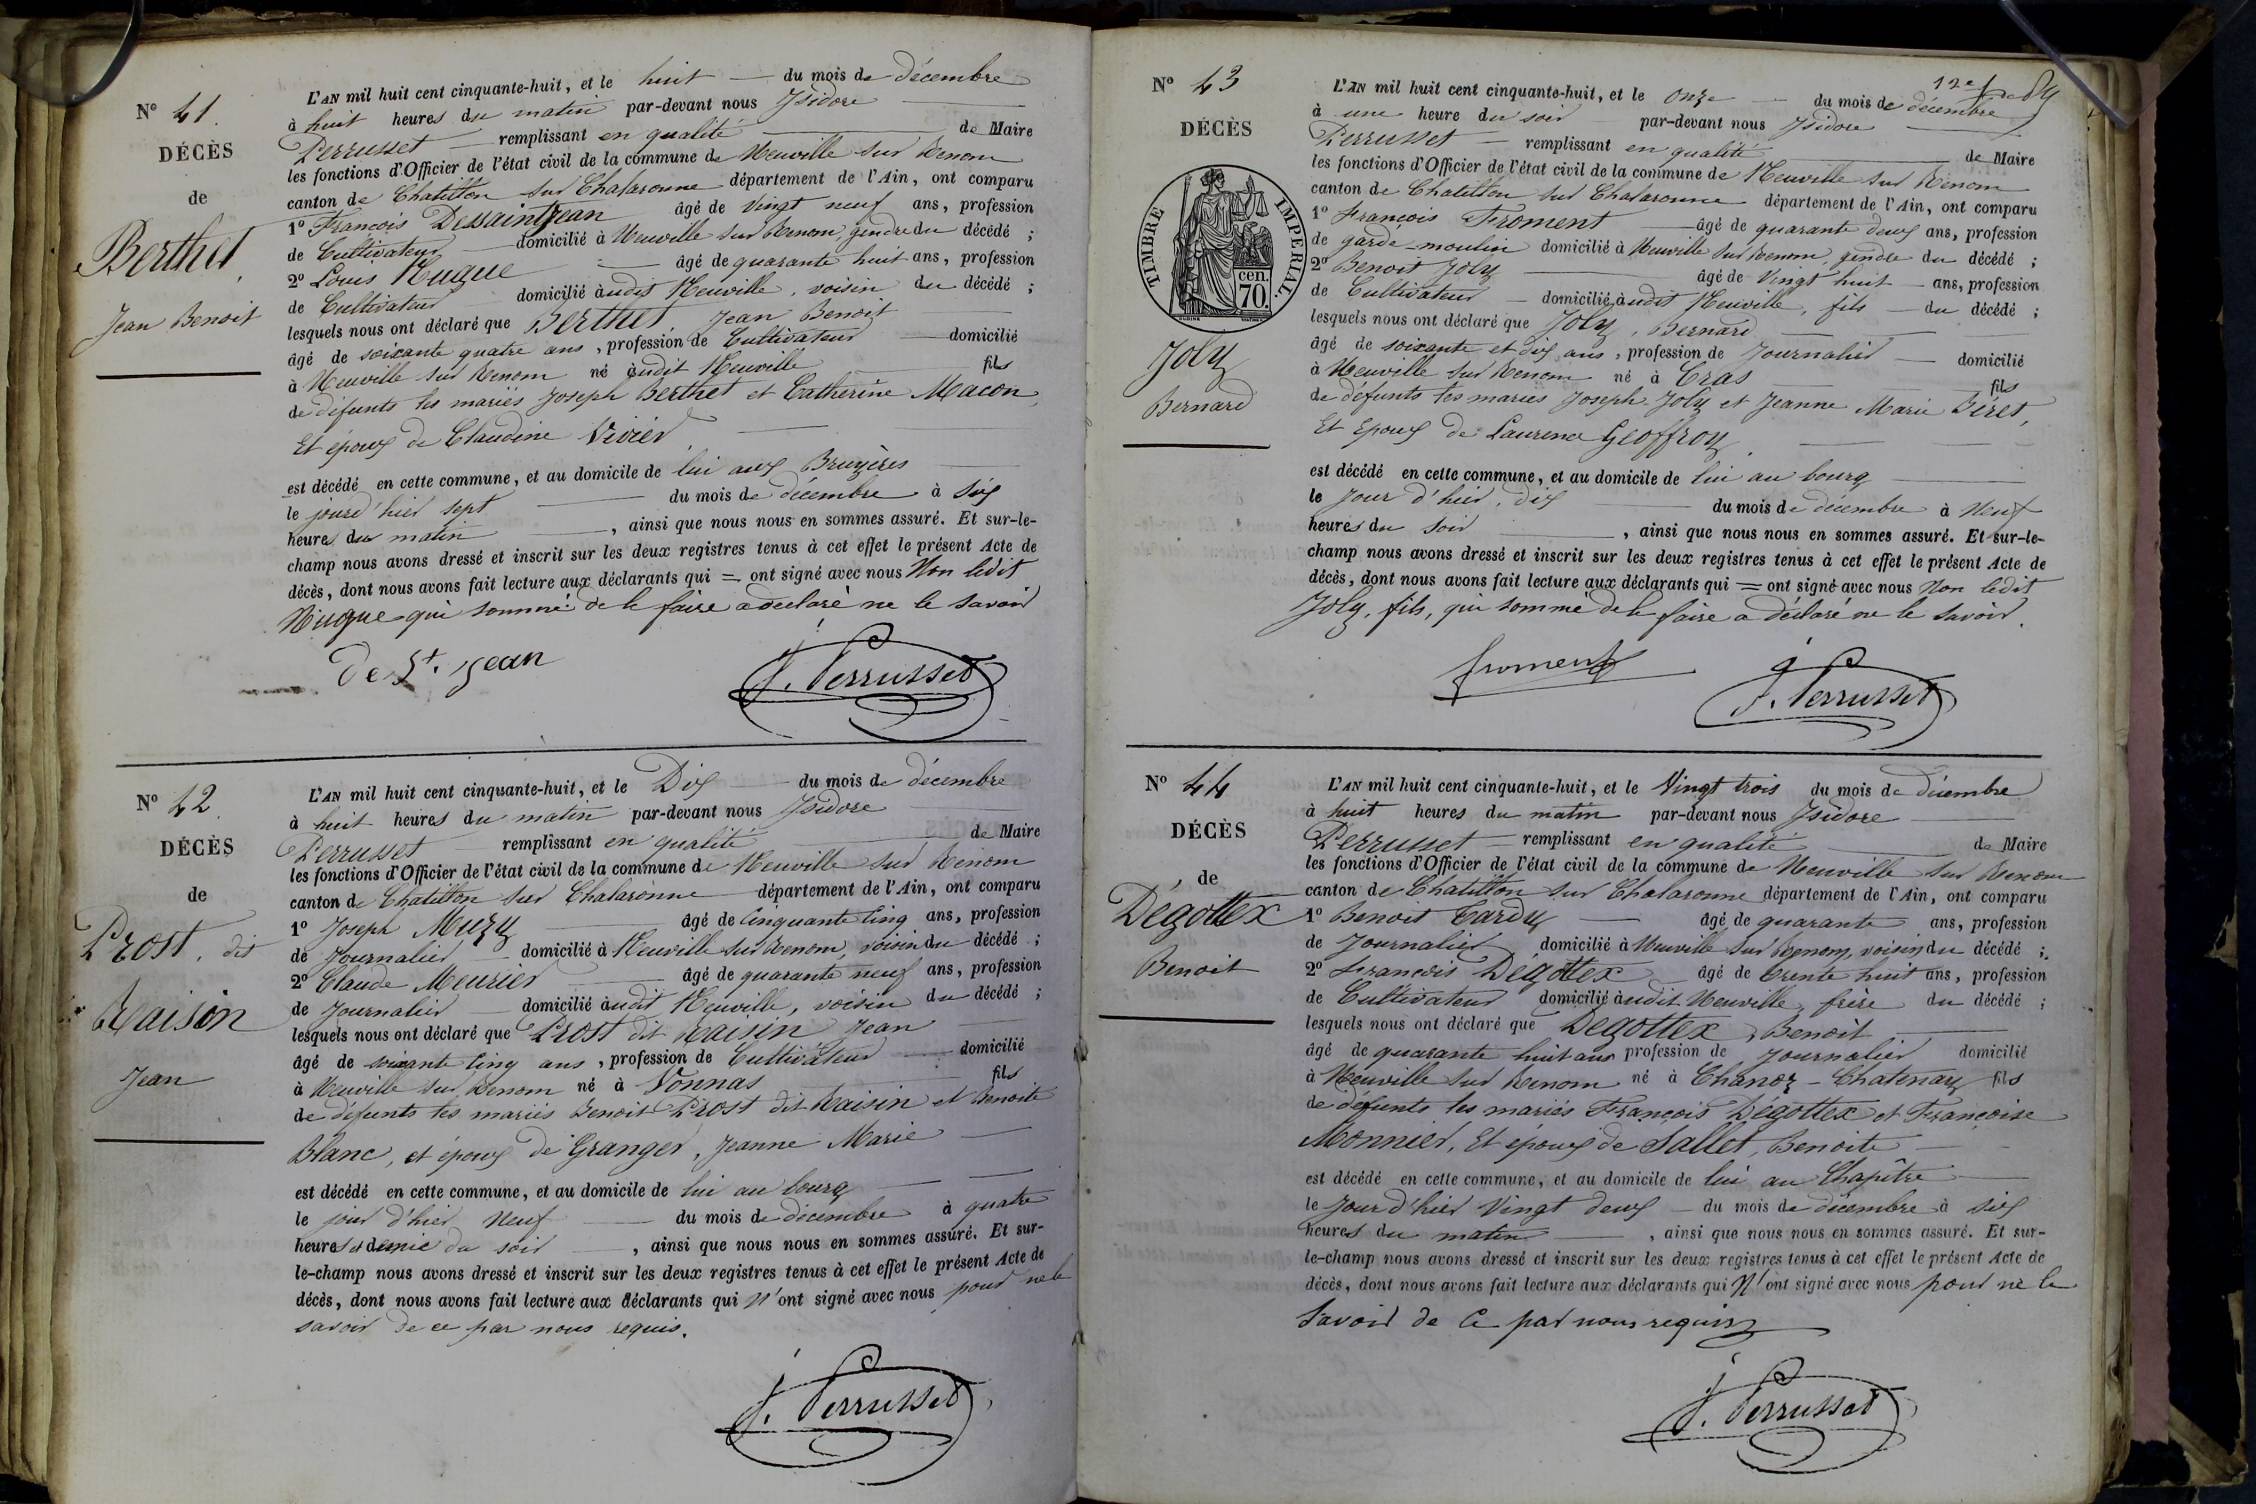 N° 41.
DÉCÈS
de
Berthet,
Jean Benoit
L'AN mil huit cent cinquante-huit, et le huit du mois de décembre
à huit heures du matin par-devant nous Isidore
Perrusset remplissant en qualité de Maire
les fonctions d'Officier de l'état civil de la commune de Neuville sur Renom
canton de Chatillon sur Chalaronne département de l'Ain, ont comparu
1° François Dessaintjean âgé de vingt neuf ans, profession
de Cultivateur domicilié à Neuville sur Renom, gendre du décédé ;
2° Louis Nugue âgé de quarante huit ans, profession
de Cultivateur domicilié àudit Neuville, voisin du décédé ;
lesquels nous ont déclaré que Berthet Jean Benoit
âgé de soixante quatre ans, profession de Cultivateur domicilié
à Neuville sur Renom né àudit Neuville fils
de défunts les mariés Joseph Berthet et Catherine Macon,
Et époux de Claudine Vivier
est décédé en cette commune, et au domicile de lui aux Bruyères
le jourd'hier sept du mois de décembre à six
heures du matin, ainsi que nous nous en sommes assuré. Et sur-le-
champ nous avons dressé et inscrit sur les deux registres tenus à cet effet le présent Acte de
décès, dont nous avons fait lecture aux déclarants qui = ont signé avec nous Non ledit
Nugue qui sommé de le faire a déclaré ne le savoir
de St. jean
J. Perrusset
N° 42.
DÉCÈS
de
Prost, dit
Raisin
Jean
L'AN mil huit cent cinquante-huit, et le Dix du mois de décembre
à huit heures du matin par-devant nous Isidore
Perrusset remplissant en qualité de Maire
les fonctions d'Officier de l'état civil de la commune de Neuville sur Renom
canton de Chatillon sur Chalaronne département de l'Ain, ont comparu
1° Joseph Muzy âgé de Cinquante Cinq ans, profession
de Journalier domicilié à Neuville sur Renom, voisin du décédé ;
2° Claude Meurier âgé de quarante neuf ans, profession
de Journalier domicilié àudit Neuville, voisin du décédé ;
lesquels nous ont déclaré que Prost dit Raisin Jean
âgé de soixante Cinq ans, profession de Cultivateur domicilié
à Neuville sur Renom né à Vonnas fils
de défunts les mariés Benoit Prost dit Raisin et Benoite
Blanc, et époux de Granger, Jeanne Marie
est décédé en cette commune, et au domicile de lui au bourg
le jour d'hier Neuf du mois de décembre à quatre
heures et demie du soir, ainsi que nous nous en sommes assuré. Et sur-
le-champ nous avons dressé et inscrit sur les deux registres tenus à cet effet le présent Acte de
décès, dont nous avons fait lecture aux déclarants qui N'ont signé avec nous pour ne le
savoir de ce par nous requis.
J. Perrusset
N° 43
DÉCÈS
TIMBRE IMPERIAL.
cen.
70.
Joly
Bernard
L'AN mil huit cent cinquante-huit, et le Onze du mois de décembre
à une heure du soir par-devant nous Isidore
Perrusset remplissant en qualité de Maire
les fonctions d'Officier de l'état civil de la commune de Neuville sur Renom
canton de Chatillon sur Chalaronne département de l'Ain, ont comparu
1° François Froment âgé de quarante deux ans, profession
de garde-moulin domicilié à Neuville sur Renom, gendre du décédé ;
2° Benoit Joly âgé de Vingt huit ans, profession
de Cultivateur domicilié àudit Neuville, fils du décédé ;
lesquels nous ont déclaré que Joly, Bernard
âgé de soixante et dix ans, profession de Journalier domicilié
à Neuville sur Renom né à Cras fils
de défunts les mariés Joseph Joly et Jeanne Marie Béret,
Et Epoux de Laurence Geoffroy
est décédé en cette commune, et au domicile de lui au bourg
le jour d'hier, dix du mois de décembre à Neuf
heures du soir, ainsi que nous nous en sommes assuré. Et sur-le-
champ nous avons dressé et inscrit sur les deux registres tenus à cet effet le présent Acte de
décès, dont nous avons fait lecture aux déclarants qui = ont signé avec nous Non ledit
Joly, fils, qui sommé de le faire a déclaré ne le savoir.
froment
J. Perrusset
N° 44
DÉCÈS
de
Dégottex
Benoit
L'AN mil huit cent cinquante-huit, et le Vingt trois du mois de décembre
à huit heures du matin par-devant nous Isidore
Perrusset remplissant en qualité de Maire
les fonctions d'Officier de l'état civil de la commune de Neuville sur Renom
canton de Chatillon sur Chalaronne département de l'Ain, ont comparu
1° Benoit Cardy âgé de quarante ans, profession
de Journalier domicilié à Neuville sur Renom, voisin du décédé ;
2° François Dégottex âgé de trente huit ans, profession
de Cultivateur domicilié àudit Neuville, frère du décédé ;
lesquels nous ont déclaré que Dégottex, Benoit
âgé de quarante huit ans profession de Journalier domicilié
à Neuville sur Renom né à Chanoz-Chatenay fils
de défunts les mariés François Dégottex et Françoise
Monnier, Et époux de Sallet, Benoite
est décédé en cette commune, et au domicile de lui au Chapitre
le Jour d'hier Vingt deux du mois de décembre à six
heures du matin, ainsi que nous nous en sommes assuré. Et sur-
le-champ nous avons dressé et inscrit sur les deux registres tenus à cet effet le présent Acte de
décès, dont nous avons fait lecture aux déclarants qui N'ont signé avec nous pour ne le
Savoir de Ce par nous requis
J. Perrusset